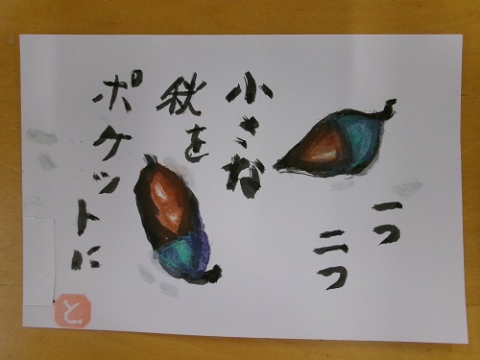 一つ
二つ
小さな
秋を
ポケットに
と